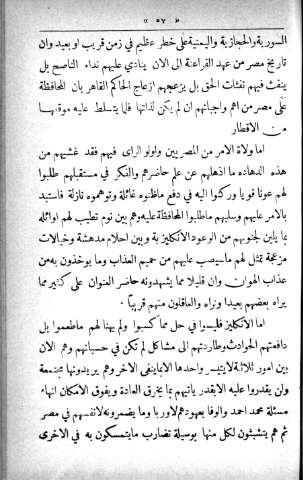 « ٥٧ »
السورية والحجازية واليمنية على خطر عظيم في زمن قريب او بعيد وان
تاريخ مصر من عهد الفراعنة الى الان ينادي عليهم نداء الناصح بل
ينفث فيهم نفثات الحق بل يزعجهم ازعاج الحاكم القاهر بان المحافظة
على مصر من اهم واجباتهم ان لم يكن لذاتها فلما يتسلط عليه موقعها
من الاقطار
اما ولاة الامر من المصريين واولو الراى فيهم فقد غشيهم من
هذه الدهاده ما اذهلهم عن علم حاضرهم والفكر في مستقبلهم طلبوا
لهم عونا قويا وركنوا اليه في دفع ماظنوه غائلة وتوهموه نازلة فاستبد
بالامر عليهم وسلبهم ماطلبوا المحافظة عليه وهم بين نوم تطيب لهم اوائله
بما يلين لجنوبهم من الوعود الانكليزية وبين احلام مدهشة وخيالات
مزعجة تمثل لهم ماسيصب عليهم من حميم العذاب وما يوخذون به من
عذاب الهون وان قليلا مما يشهدونه حاضر العنوان على كثير مما
يراه بعضهم بعيدا ونراه والعاقلون منهم قريبا
اما الانكليز فليسوا في حل مما كسبوا ولو يهنا لهم ماطعموا بل
دافعتهم الحوادث وطاردتهم الى مشاكل لم تكن في حسبانهم وهم الان
بين امور ثلاثة لايتيسر واحدها الابماينفى الاخر وهم يريدونها مجتمعة
ولن يقدروا عليه الابقدر ياتيهم بما يخرق العادة ويفوق الامكان انهاء
مسئلة محمد احمد والوفا بعهودهم لاوربا وما يضمرونه لانفسهم في مصر
ثم هم يتشبثون لكل منها بوسيلة تضارب مايتمسكون به في الاخرى